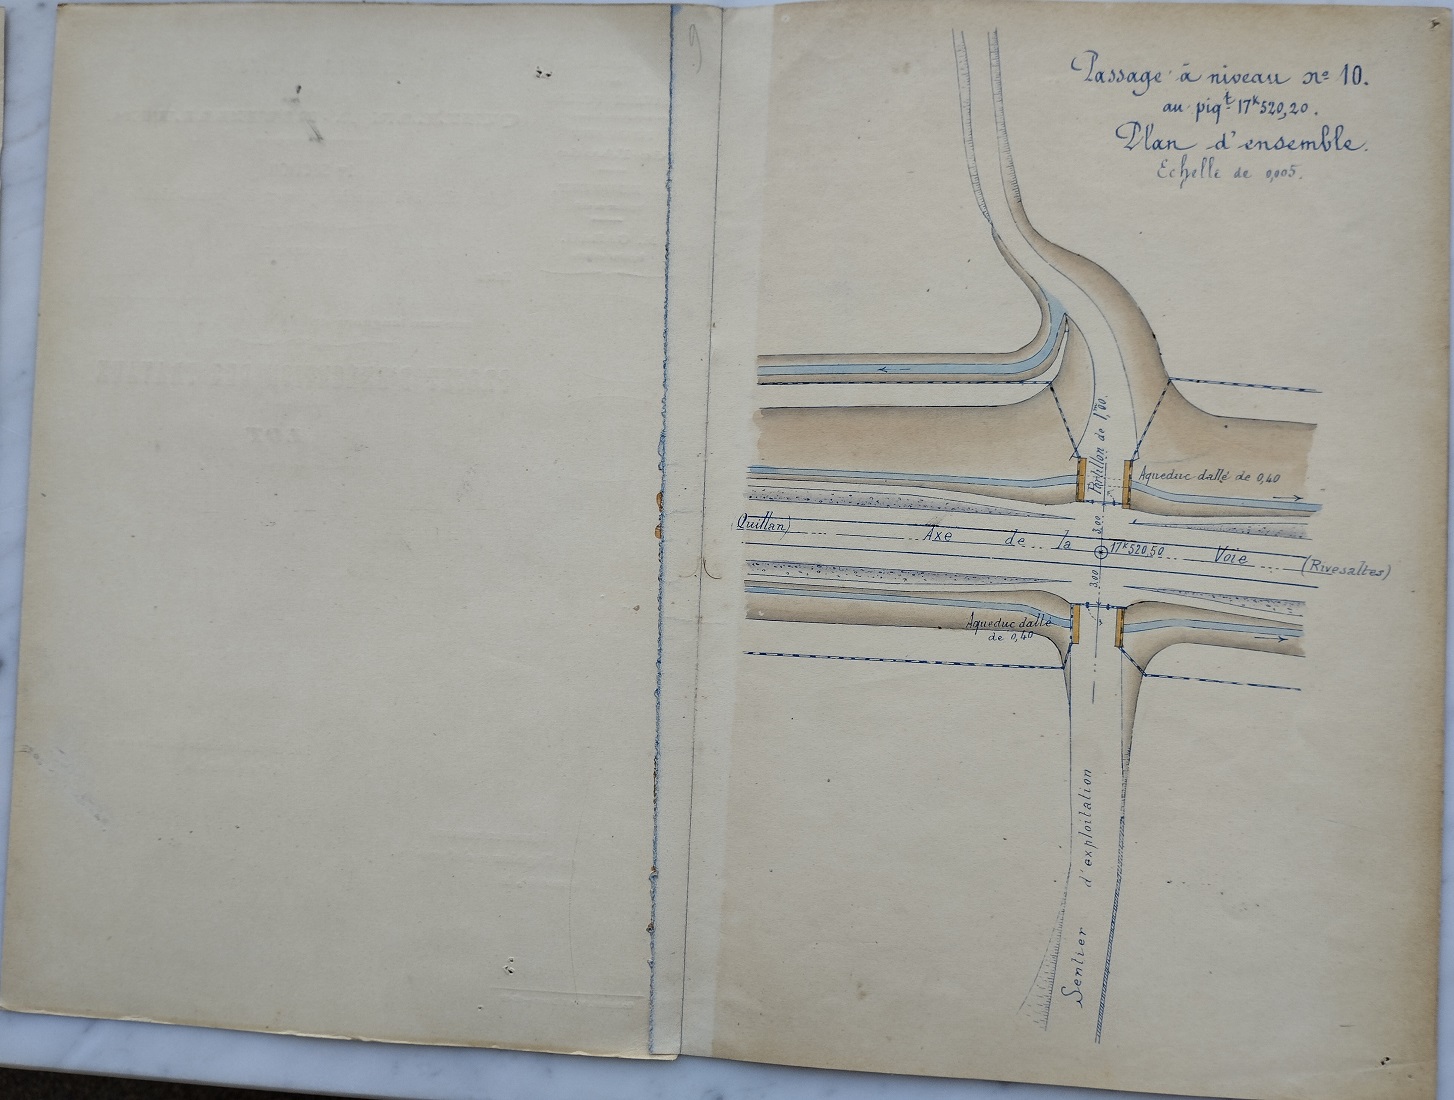 9
Passage à niveau nº 10.
au piqt 17k520,20.
Plan d'ensemble.
Echelle de 0,005.
Portillon de 1m,00.
Aqueduc dallé de 0,40
(Quillan)
Axe de la Voie
3.00
17k520,50
(Rivesaltes)
3.00
Aqueduc dallé
de 0,40
Sentier d'exploitation